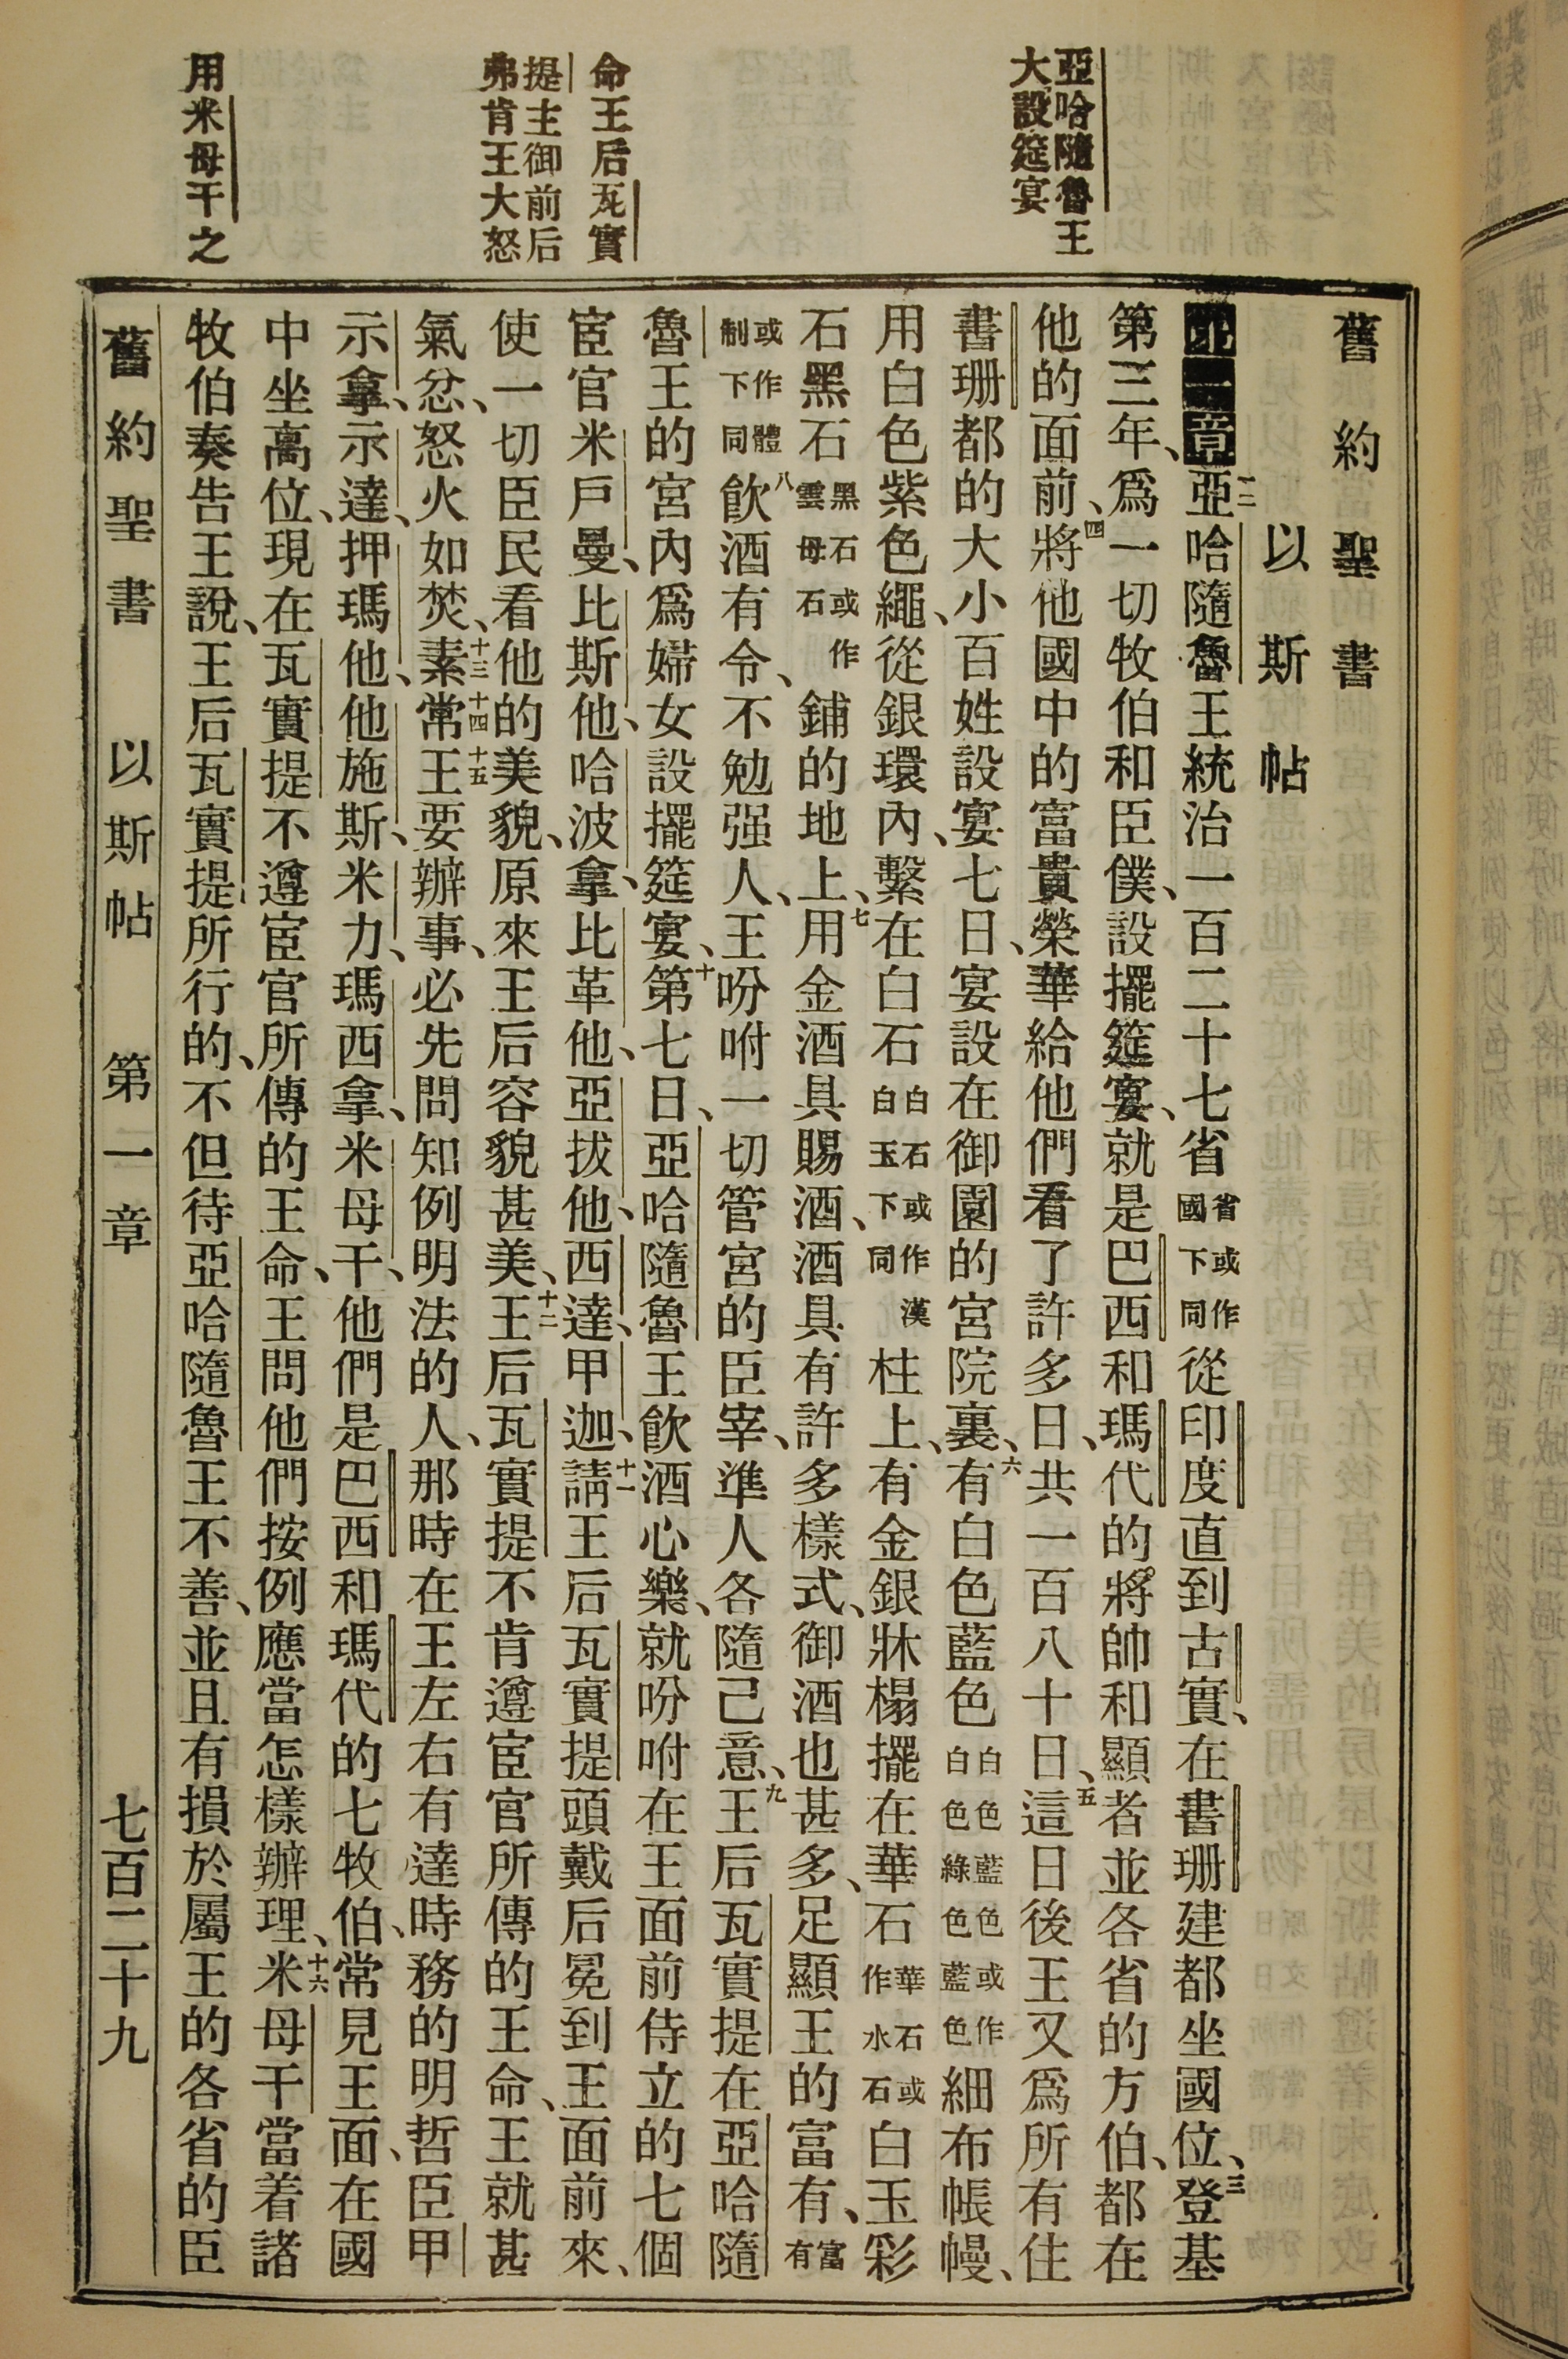 亞哈隨魯王
大設筵宴
命王后瓦實
提主御前后
弗肯王大怒
用米母干之
舊約聖書
以斯帖
第一章一二亞哈隨魯王統治一百二十七省省或作國下同從印度直到古實、在書珊建都坐國位、三登基
第三年、爲一切牧伯和臣僕、設擺筵宴、就是巴西和瑪代的將帥和顯者並各省的方伯、都在
他的面前、四將他國中的富貴榮華給他們看了許多日、共一百八十日、五這日後王又爲所有住
書珊都的大小百姓設宴七日、宴設在御園的宮院裏、六有白色藍色白色藍色或作白色綠色藍色細布帳幔、
用白色紫色繩、從銀環內、繫在白石白石或作漢白玉下同柱上、有金銀牀榻擺在華石華石或作水石白玉彩
石黑石黑石或作雲母石鋪的地上、七用金酒具賜酒、酒具有許多樣式、御酒也甚多、足顯王的富有、富有
或作體制下同八飲酒有令、不勉强人、王吩咐一切管宮的臣宰、準人各隨己意、九王后瓦實提在亞哈隨
魯王的宮內爲婦女設擺筵宴、十第七日、亞哈隨魯王飲酒心樂、就吩咐在王面前侍立的七個
宦官米戶曼、比斯他、哈波拿、比革他、亞拔他、西達、甲迦、十一請王后瓦實提頭戴后冕到王面前來、
使一切臣民看他的美貌、原來王后容貌甚美、十二王后瓦實提不肯遵宦官所傳的王命、王就甚
氣忿、怒火如焚、十三素十四常十五王要辦事、必先問知例明法的人、那時在王左右有達時務的明哲臣甲
示拿、示達、押瑪他、他施斯、米力、瑪西拿、米母干、他們是巴西和瑪代的七牧伯、常見王面、在國
中坐高位、現在瓦實提不遵宦官所傳的王命、王問他們按例應當怎樣辦理、十六米母干當着諸
牧伯奏告王說、王后瓦實提所行的、不但待亞哈隨魯王不善、並且有損於屬王的各省的臣
舊約聖書 以斯帖 第一章 七百二十九